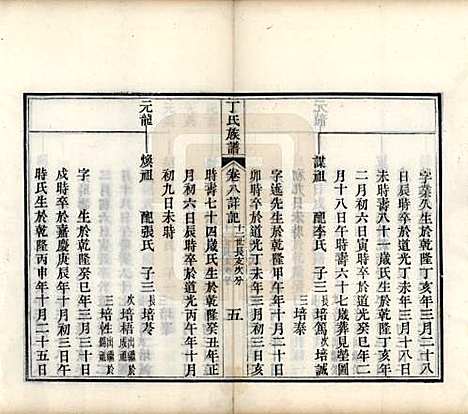 字業久生於乾隆丁亥年三月二十八
日辰時卒於道光丁未年三月初三日
未時壽八十一歲氏生於乾隆癸巳年
十月初六日寅時卒於道光癸巳年二
月十八日午時壽六十七歲葬見塋圖
元龍 謀祖 配李氏 子三 長培篤 次培誠
三培泰
字遠先生於乾隆甲午年十月二十日
卯時卒於道光丁未年二月初三日亥
丁氏族譜 卷八詳記 十二世長支次分 五
時壽七十四歲氏生於乾隆癸丑年正
月初六日酉時卒於道光丙午年十月
初九日未時
元龍 煥祖 配張氏 子三 長培苓
次培梧 出繼於成祖
三培性 出繼於錫祖
字 生於乾隆癸巳年三月十三日
戌時卒於嘉慶庚辰年十月初三日午
時氏生於乾隆丙申年十月二十五日